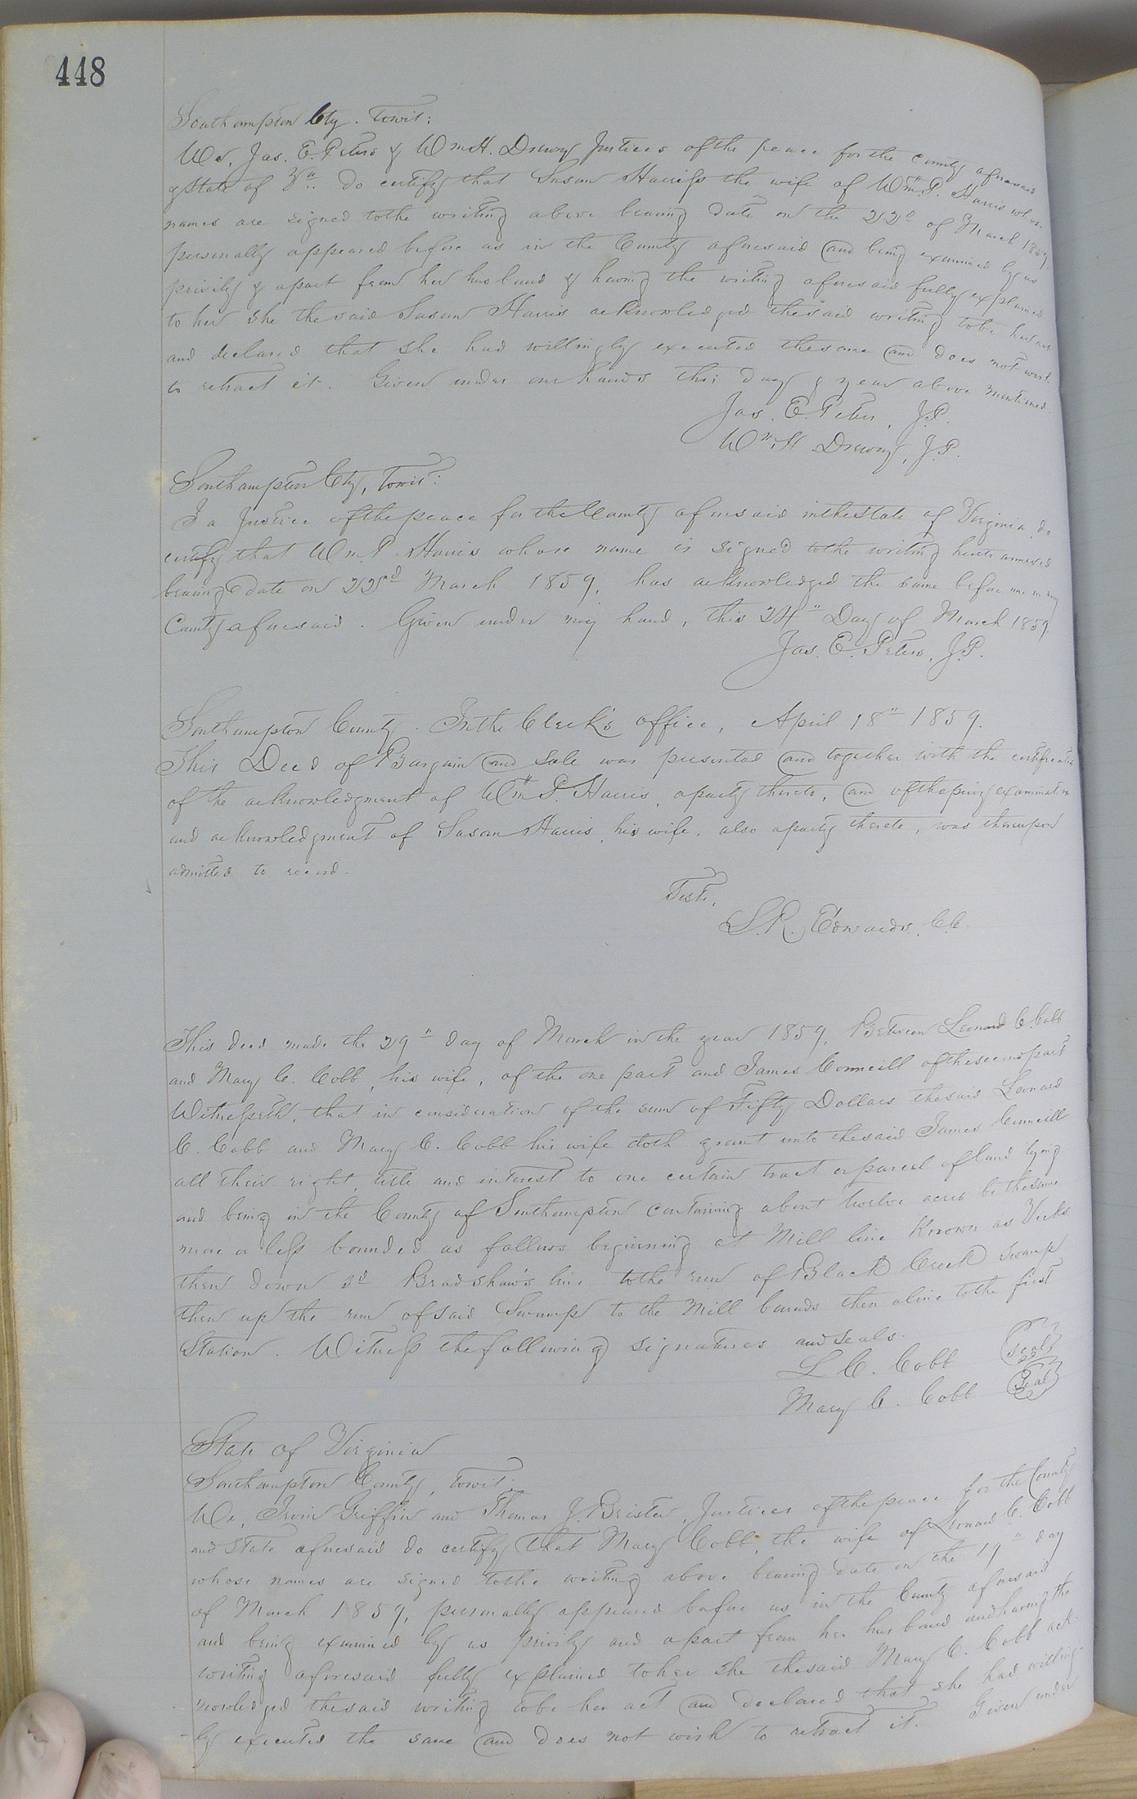 448
Southampton Cty. Towit:
We, Jas. E. Peters & Wm H. Drewry Justices of the peace for the County aforesaid
& State of Va. Do certify that Susan Harriss the wife of Wm. P. Harris whose
names are signed to the writing above bearing date on the 22d of March 1859,
personally appeared before us in the County aforesaid and being examined by us
privily & apart from her husband & having the writing aforesaid fully explained
to her she the said Susan Harris acknowledged the said writing to be her act
and declared that she had willingly executed the same and does not wish
to retract it. Given under our hands this day & year above mentioned.
Jas. E. Peters, J.P.
Wm H Drewry, J.P.
Southampton Cty, Towit:
I a Justice of the peace for the County aforesaid in the State of Virginia, do
certify that Wm P. Harris whose name is signed to the writing hereto annexed
bearing date on 22nd March 1859, has acknowledged the same before me in my
County aforesaid. Given under my hand, this 24th Day of March 1859
Jas. E. Peters, J.P.
Southampton County. In the Clerk's office, April 18th 1859.
This Deed of Bargain and Sale was presented and together with the certificates
of the acknowledgment of Wm P. Harris, a party thereto, and of the privy examination
and acknowledgment of Susan Harris, his wife, also a party thereto, was thereupon
admitted to record.
Teste,
L.R. Edwards, C.C.
This deed made the 29th day of March in the year 1859, Between Leonard C. Cobb
and Mary C. Cobb, his wife, of the one part and James Conneill of the second part
Witnesseth, that in consideration of the sum of Fifty Dollars the said Leonard
C. Cobb and Mary C. Cobb his wife doth grant unto the said James Conneill
all their right title and interest to one certain tract or parcel of land lying
and being in the County of Southampton containing about twelve acres be the same
more or less bounded as follows beginning at Mill line Known as Vicks
then down sd Bradshaw's line to the run of Black Creek Swamp
then up the run of said Swamp to the Mill bounds then a line to the first
Station. Witness the following signatures and seals.
L C. Cobb Seal
Mary C. Cobb Seal
State of Virginia
Southampton County, towit:
We, Irvin Griffin and Thomas J. Brister, Justices of the peace for the County
and State aforesaid do certify that Mary Cobb, the wife of Leonard C. Cobb
whose names are signed to the writing above bearing date on the 19th day
of March 1859, personally appeared before us in the County aforesaid
and being examined by us privily and apart from her husband and having the
writing aforesaid fully explained to her she the said Mary C. Cobb ack-
nowledged the said writing to be her act and declared that she had willing-
ly executed the same and does not wish to retract it. Given under